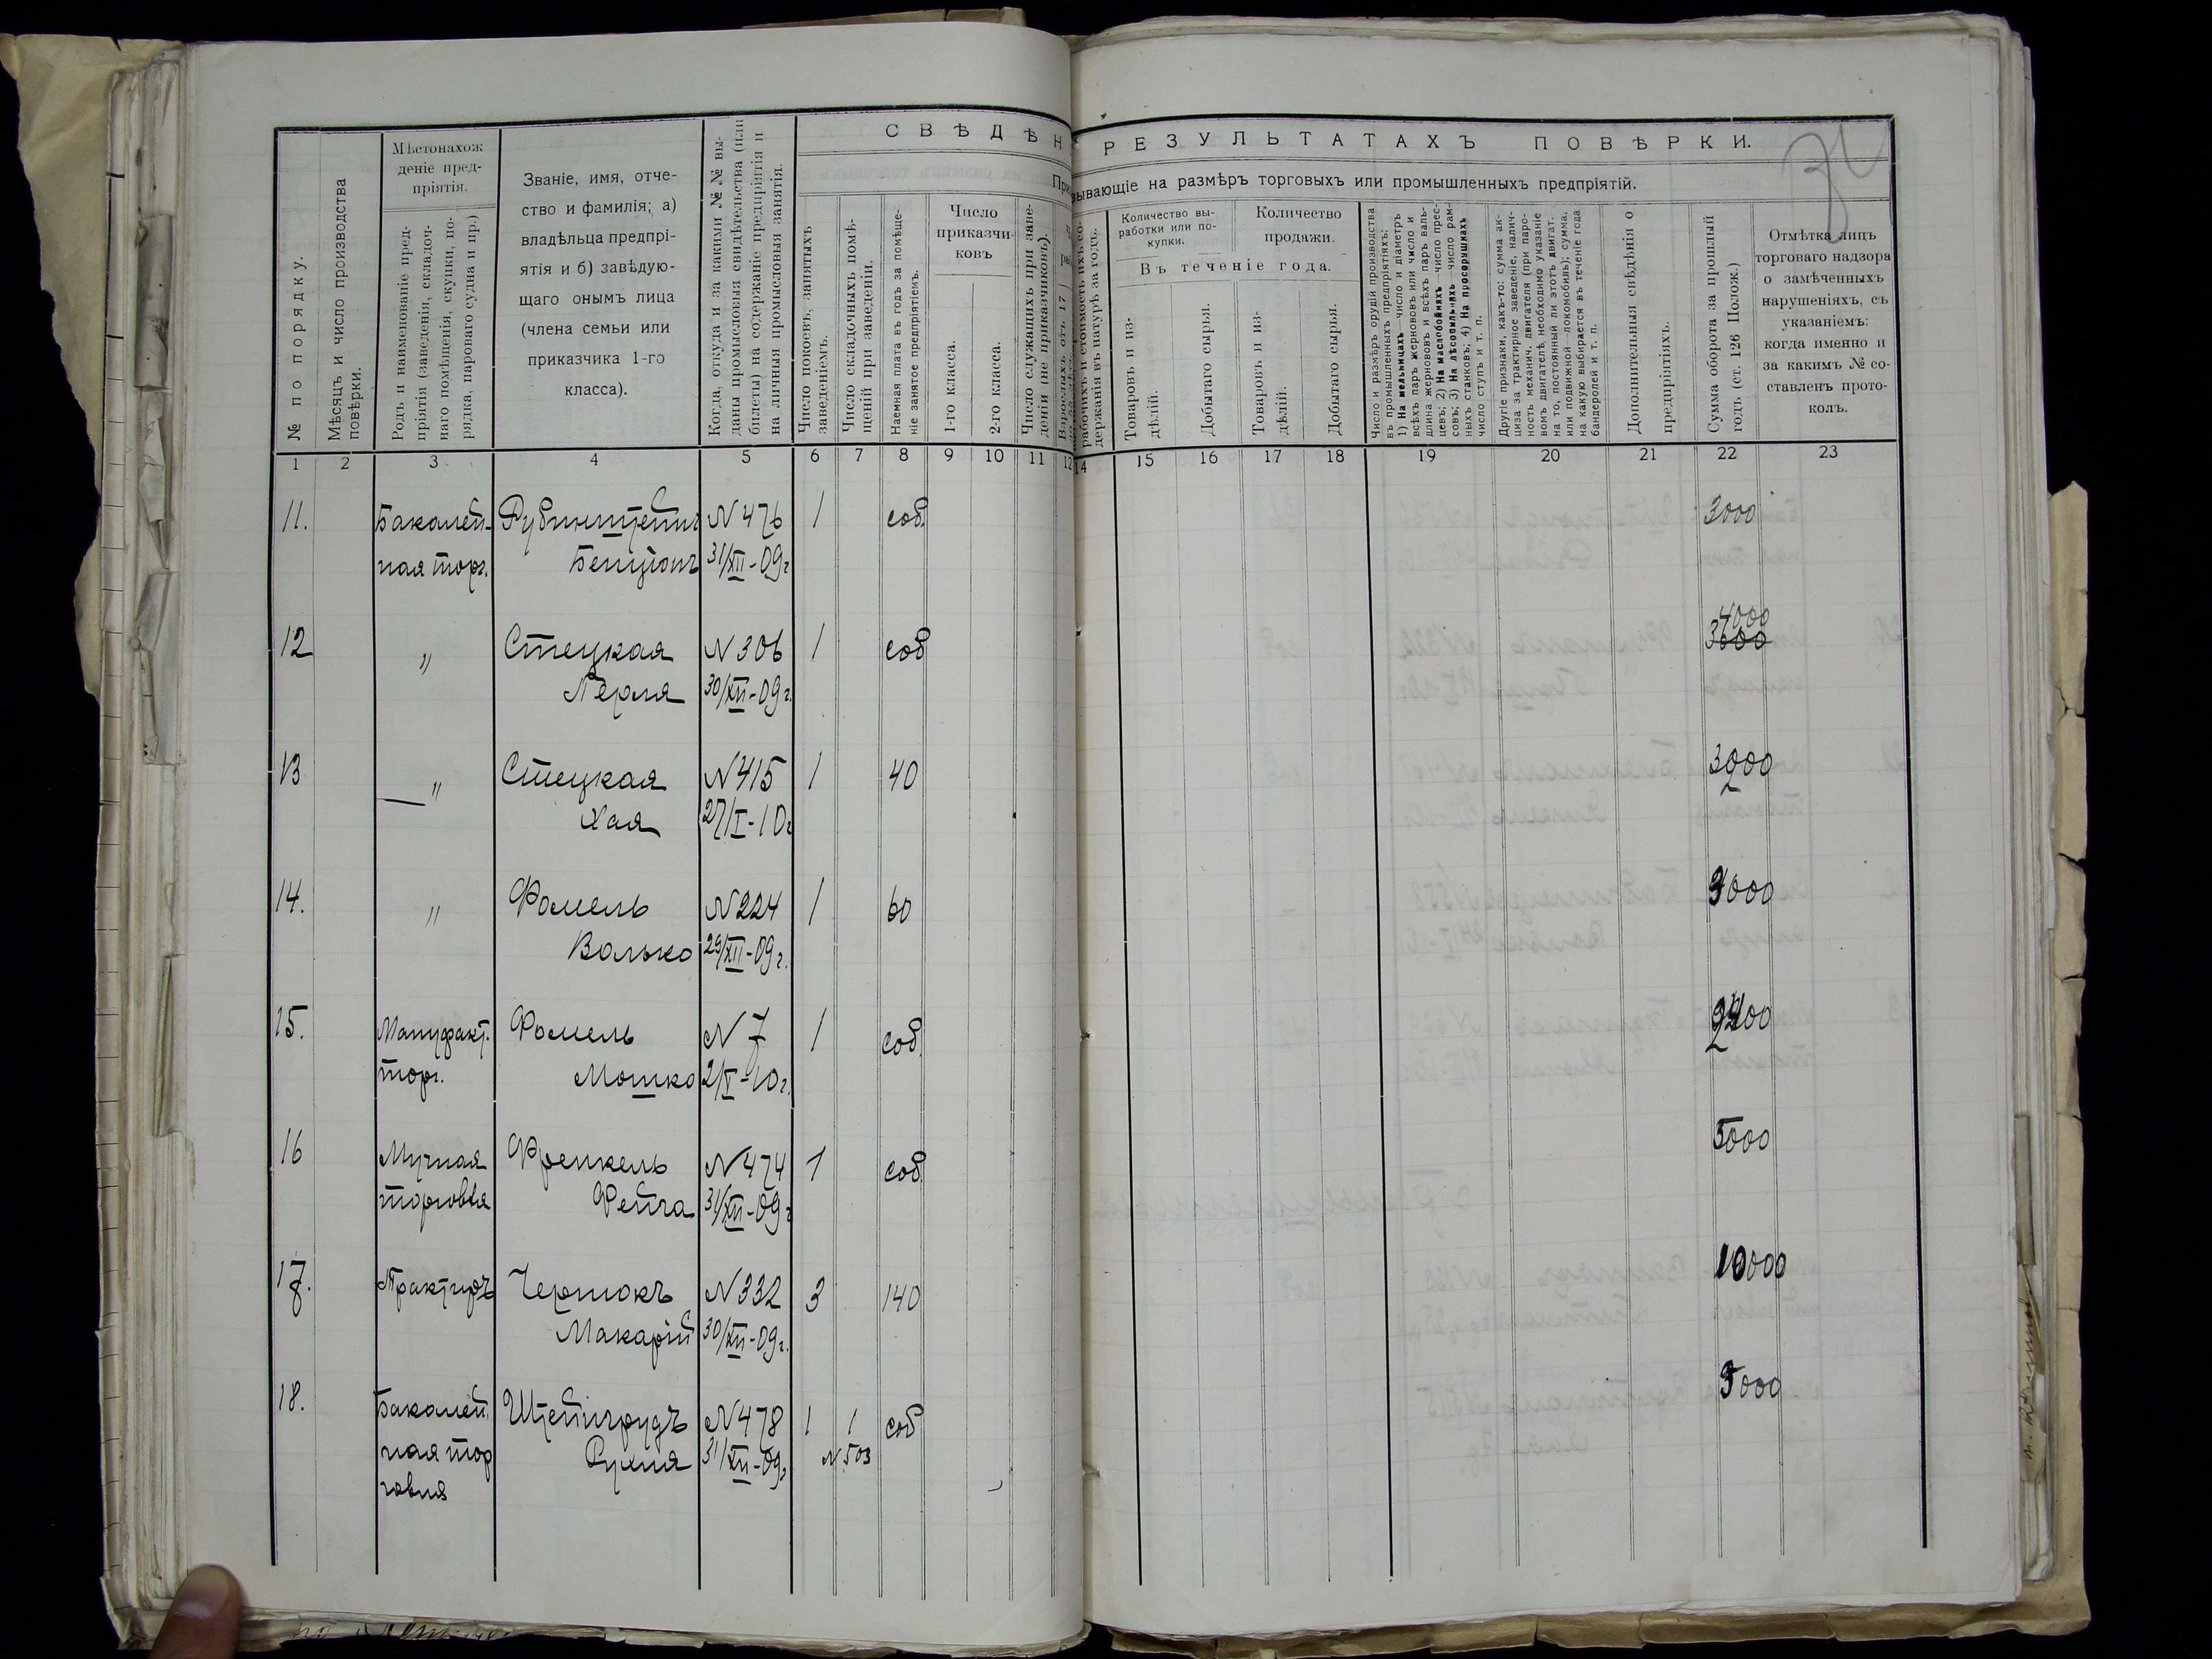 СВѢДѢН
РЕЗУЛЬТАТАХЪ ПОВѢРКИ.
При
зывающіе на размѣръ торговыхъ или промышленныхъ предпріятій.
№ по порядку.
Мѣсяцъ и число производства
повѣрки.
Мѣстонахож
деніе пред-
пріятія.
Родъ и наименованіе пред-
пріятія (заведенія, складоч-
наго помѣщенія, скупки, по-
рядка, парового судна и пр.)
Званіе, имя, отче-
ство и фамилія; а)
владѣльца предпрі-
ятія и б) завѣдую-
щаго онымъ лица
(члена семьи или
приказчика 1-го
класса).
Когда, откуда и за какими №№ вы-
даны промысловыя свидѣтельства (или
билеты) на содержаніе предпріятія и
на личныя промысловыя занятія.
Число покоевъ, занятыхъ
заведеніемъ.
Число складочныхъ помѣ-
щеній при заведеніи.
Наемная плата въ годъ за помѣще-
ніе занятое предпріятіемъ.
Число
приказчи-
ковъ
1-го класса.
2-го класса.
Число служащихъ при заве-
деніи (не приказчиковъ).
Взрослыхъ отъ 17
рабочихъ и стоимость ихъ со-
держанія въ натурѣ за годъ.
Количество вы-
работки или по-
купки.
Количество
продажи.
Въ теченіе года.
Товаровъ и из-
дѣлій.
Добытаго сырья.
Товаровъ и из-
дѣлій.
Добытаго сырья.
Число и размѣръ орудій производства
въ промышленныхъ предпріятіяхъ:
1) На мельницахъ число и діаметръ
всѣхъ паръ жернововъ или число и
длина жернововъ и всѣхъ паръ валь-
цевъ; 2) На маслобойняхъ число прес-
совъ; 3) На лѣсопильняхъ число рам-
ныхъ станковъ; 4) На просорушкахъ
число ступъ и т. п.
Другіе признаки, какъ-то: сумма ак-
циза за трактирное заведеніе, налич-
ность механич. двигателя (при паро-
вомъ двигателѣ, необходимо указаніе
на то, постоянный ли этотъ двигат.
или подвижной—локомобиль); сумма,
на какую выбирается въ теченіе года
бандеролей и т. п.
Дополнительныя свѣдѣнія о
предпріятіяхъ.
Сумма оборота за прошлый
годъ (ст. 126 Полож.)
Отмѣтка лицъ
торговаго надзора
о замѣченныхъ
нарушеніяхъ, съ
указаніемъ:
когда именно и
за какимъ № со-
ставленъ прото-
колъ.
1 2 3 4 5 6 7 8 9 10 11 12 14 15 16 17 18 19 20 21 22 23
11. Бакалей- Рубинштейнъ N 476 1 соб. 3000
ная торг. Бенціонъ 31/XII-09 г
4000
12 " Стецкая N 306 1 соб 3000
Перля 30/XII-09 г.
13 " Стецкая N 415 1 40 3000
Хая 27/I-10 г
14. " Фомель N 224 1 60 3000
Волько 29/XII-09 г.
15. Мануфакт. Фомель N 7 1 соб.
торг. Мошко 2/I-10 г.
16 Мучная Френкель N 474 1 соб. 5000
торговля Фейга 31/XII-09 г
17. Трактиръ Чертокъ N 332 3 140 10000
Макарій 30/XII-09 г.
18. Бакалей Штейнгрудъ N 478 1 1 соб 3000
ная тор Рухля 31/XII-09 г N 503
говля